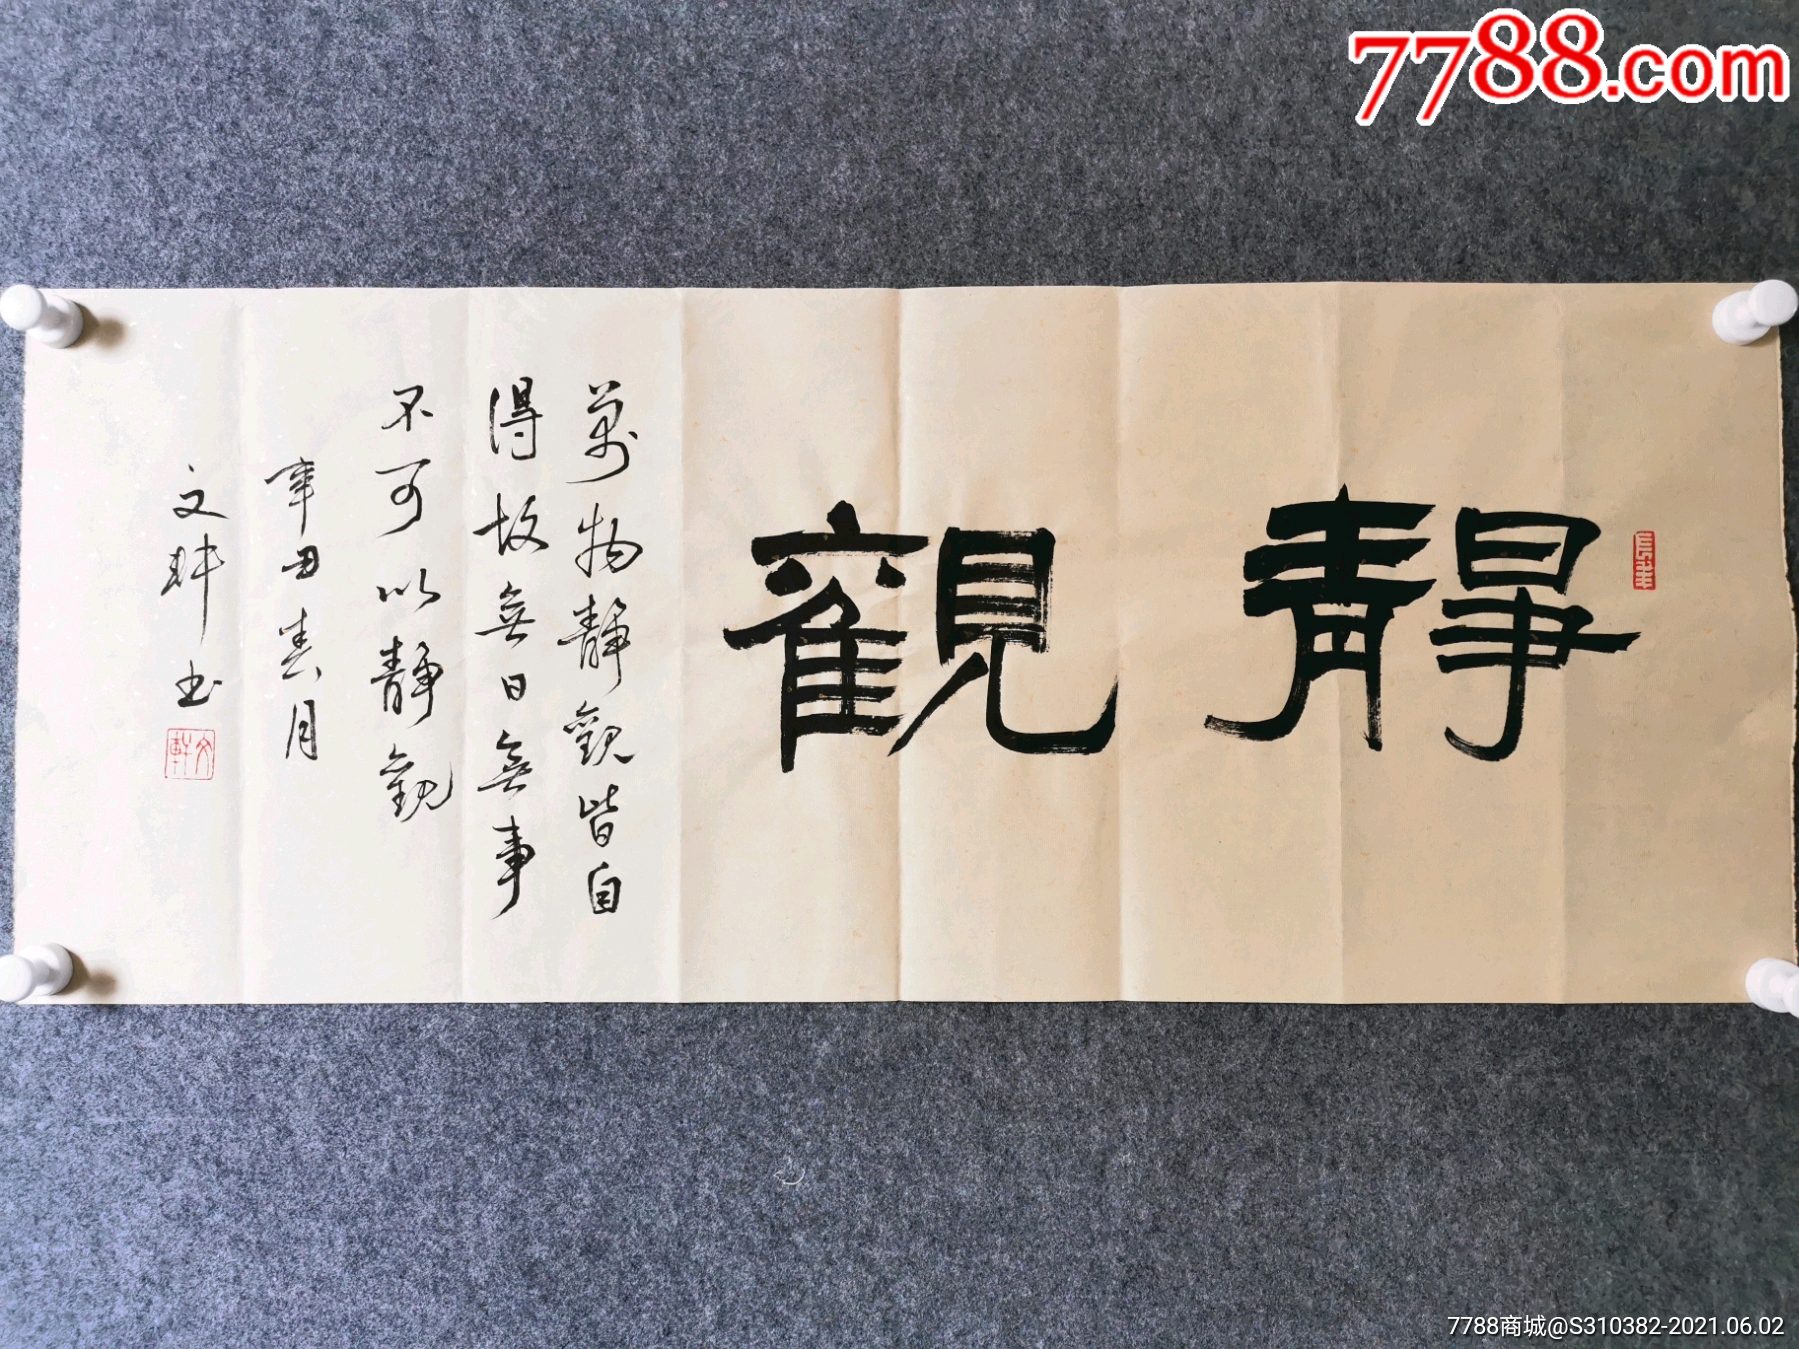 7788.com
靜觀
萬物靜觀皆自
得故無日無事
不可以靜觀
辛丑春月
文軒书
文軒
7788商城@S310382-2021.06.02